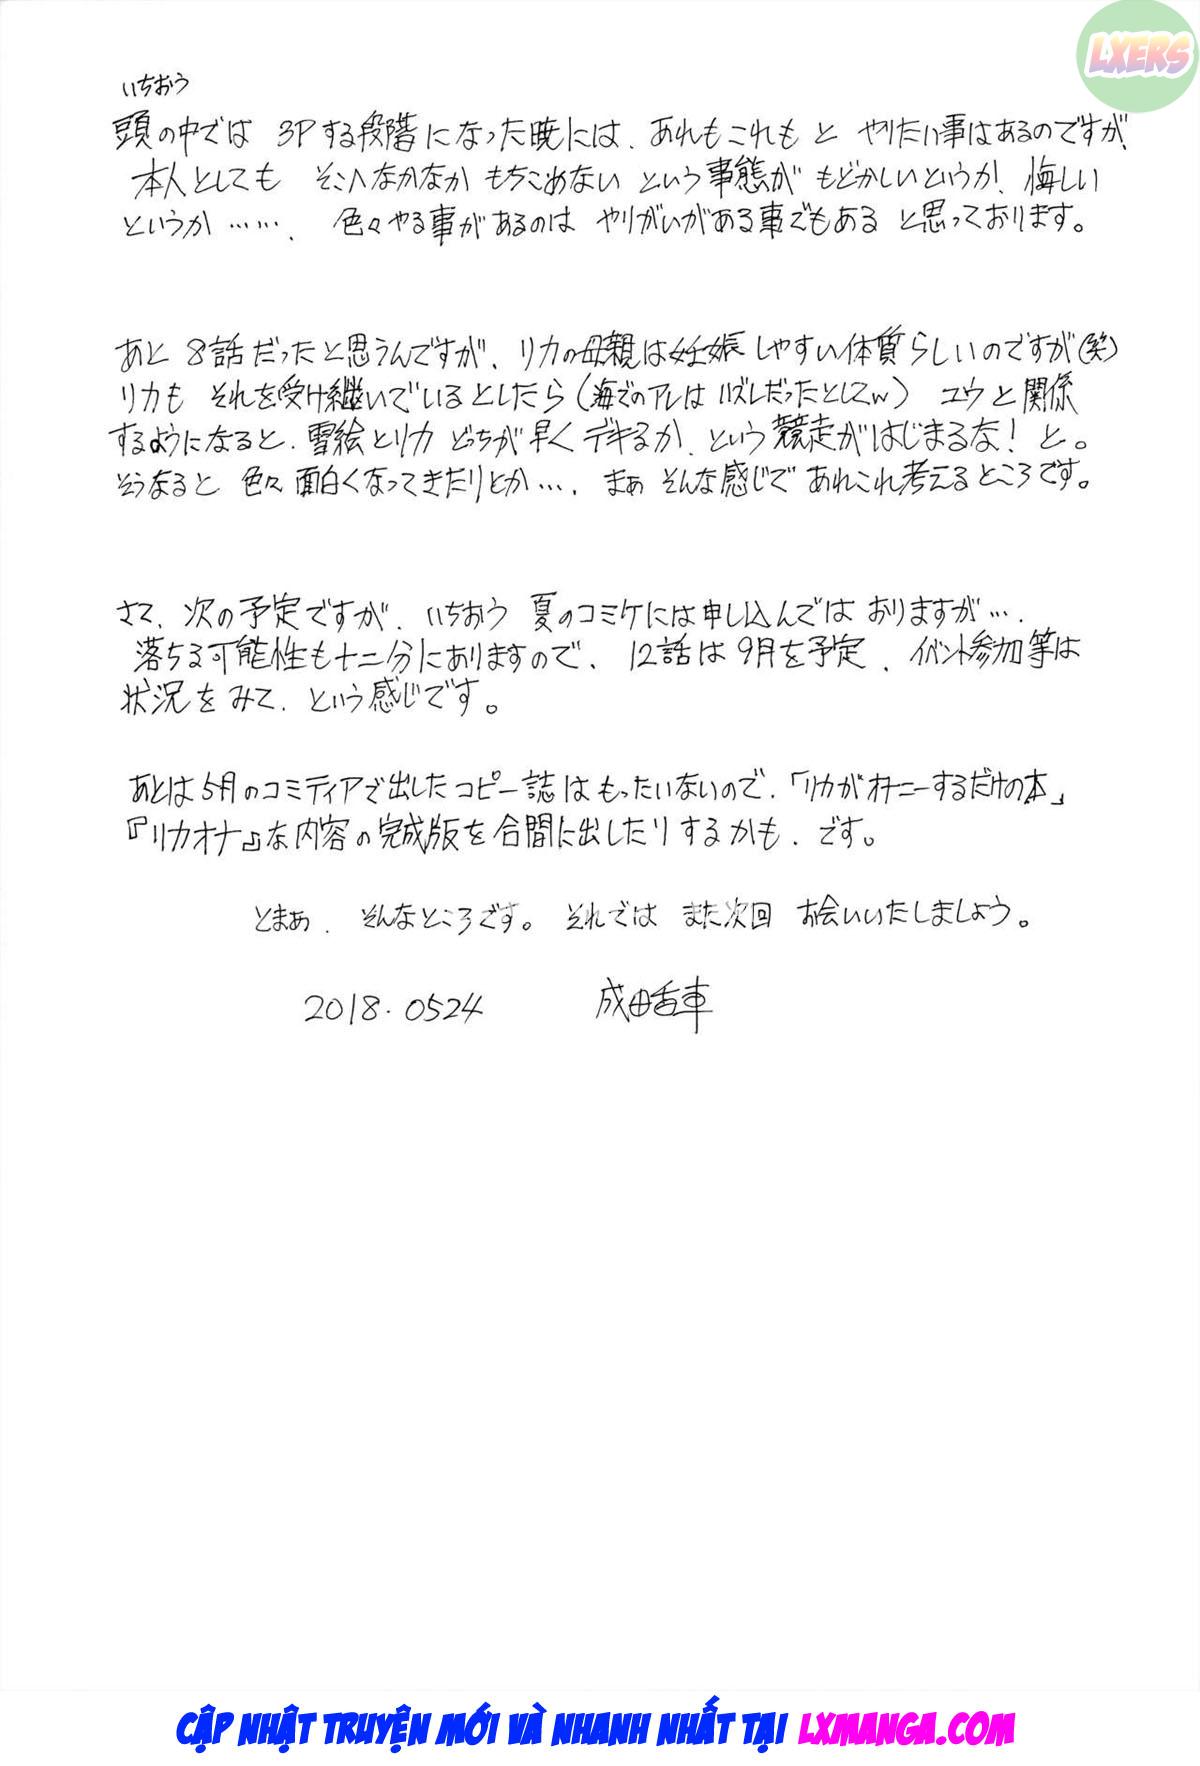 LXERS
いちおう
頭の中では 3Pする段階になった暁には、あれもこれもと やりたい事はあるのですが、
本人としても そこへなかなか もちこめない という事態が もどかしいというか、悔しい
というか……、 色々やる事があるのは やりがいがある事でもある と思っております。
あと 8話だったと思うんですが、リカの母親は妊娠しやすい体質らしいのですが(笑)
リカも それを受け継いでいるとしたら(海でのアレは ハズレだったとしてw) ユウと関係
するようになると、雪絵とリカ どっちが早くデキるか、という競走がはじまるな! と。
そうなると 色々面白くなってきたりとか…、まぁ そんな感じで あれこれ考えるところです。
さて、次の予定ですが、いちおう 夏のコミケには申し込んでは おりますが…、
落ちる可能性も十二分にありますので、 12話は9月を予定、イベント参加等は
状況をみて、という感じです。
あとは5月のコミティアで出したコピー誌はもったいないので、「リカがオナニーするだけの本」
『リカオナ』な内容の完成版を合間に出したりするかも、です。
とまぁ、そんなところです。それでは また次回 お会いいたしましょう。
2018.0524 成田香車
CẬP NHẬT TRUYỆN MỚI VÀ NHANH NHẤT TẠI LXMANGA.COM